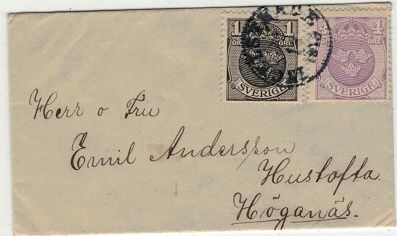 1 1 4
ÖRE ÖRE
SVERIGE SVERIGE
Herr o Fru
Emil Andersson
Hustofta
Höganäs.